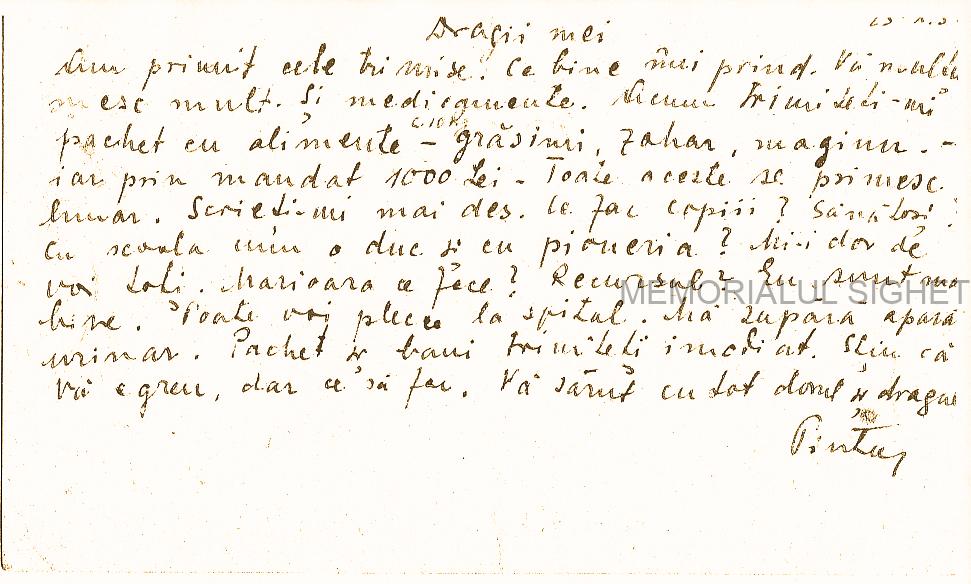 Dragii mei
Am primit cele trimise. Ce bine îmi prind. Vă mulțu
mesc mult. Și medicamente. Acum trimiteți-mi
pachet cu alimente - grăsimi, zahar, magiun. -
iar prin mandat 1000 Lei - Toate aceste se primesc
lunar. Scrieți-mi mai des. Ce fac copiii? Sănătoși?
Cu scoala cum o duc și cu pioneria? Mi-i dor de
voi toți. Marioara ce face? Recursul? Eu sunt mai
bine. Poate voi pleca la spital. Mă supără apara
urinar. Pachet și bani trimiteți imediat. Știu că
vă e greu, dar ce să fac. Vă sărut cu tot dorul și dragul
MEMORIALUL SIGHET